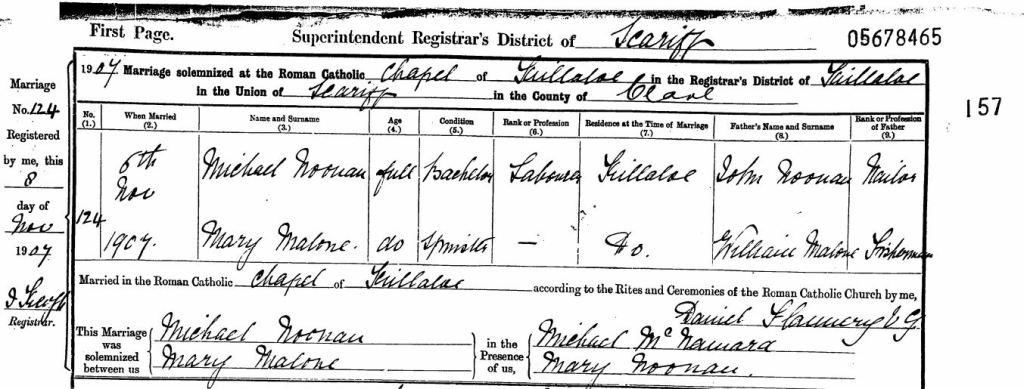 First Page. Superintendent Registrar's District of Scariff 05678465
1907 Marriage solemnized at the Roman Catholic Chapel of Killaloe in the Registrar's District of Killaloe
in the Union of Scariff in the County of Clare
157
Marriage
No. 124
Registered
by me, this
8
day of
Nov
1907.
Registrar.
No. (1.) When Married (2.) Name and Surname (3.) Age (4.) Condition (5.) Rank or Profession (6.) Residence at the Time of Marriage (7.) Father's Name and Surname (8.) Rank or Profession of Father (9.)
6th Nov Michael Noonan full Bachelor Labourer Killaloe John Noonan Nailor
124
1907. Mary Malone. do Spinster — Do. William Malone Fisherman
Married in the Roman Catholic Chapel of Killaloe according to the Rites and Ceremonies of the Roman Catholic Church by me,
Daniel Flannery V G
This Marriage was solemnized between us { Michael Noonan } in the Presence of us, { Michael McNamara
Mary Malone Mary Noonan.